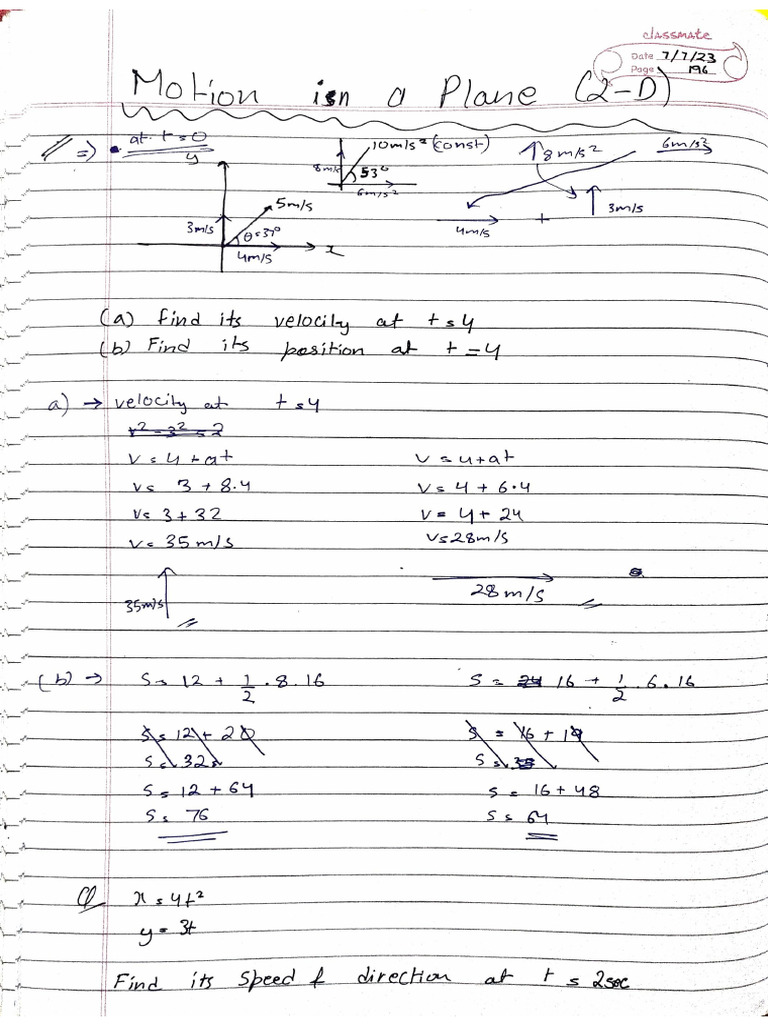 classmate
Date 7/7/23
Page 196
Motion in a Plane (2-D)
=> • at t = 0
y
10m/s² (const)
8m/s²
53°
6m/s²
8m/s²
6m/s²
5m/s
3m/s
θ=37°
4m/s
x
4m/s + 3m/s
(a) find its velocity at t = 4
(b) Find its position at t = 4
a) → velocity at t = 4
v² - 3² = 2
v = u + at v = u + at
v = 3 + 8·4 v = 4 + 6·4
v = 3 + 32 v = 4 + 24
v = 35 m/s v = 28m/s
35m/s 28 m/s
(b) → S = 12 + 1/2 · 8 · 16 S = 16 + 1/2 · 6 · 16
S = 12 + 20 S = 16 + 19
S = 32
S = 12 + 64 S = 16 + 48
S = 76 S = 64
Q x = 4t²
y = 3t
Find its speed & direction at t = 2sec